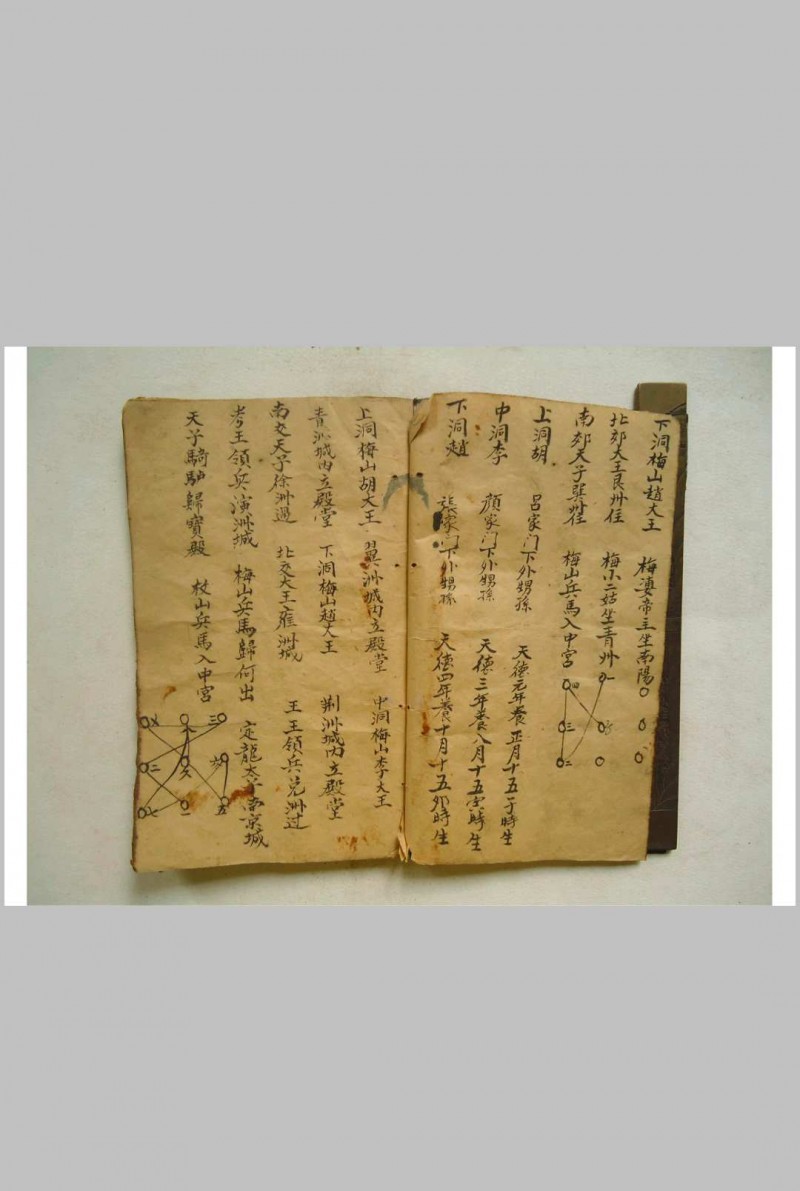 下洞梅山趙大王 梅婆帝主坐南陽
北郊大王艮州住 梅小二姑坐青州
南郊天子巽州住 梅山兵馬入中宮
一
四
三
二
上洞胡 呂家门下外甥孫 天德元年養正月十五子時生
中洞李 顏家门下外甥孫 天德三年養八月十五 時生
下洞趙 張家门下外甥孫 天德四年養十月十五卯時生
上洞梅山胡大王 翼洲城内立殿堂 中洞梅山李大王
青洲城内立殿堂 下洞梅山趙大王 荆洲城内立殿堂
南交天子徐洲過 北交大王雍洲城 王王領兵兑洲过
考王領兵演洲城 梅山兵馬歸何出 定龍太子 京城
天子騎馿歸寶殿 杖山兵馬入中宮
三
二
六
七
一
五